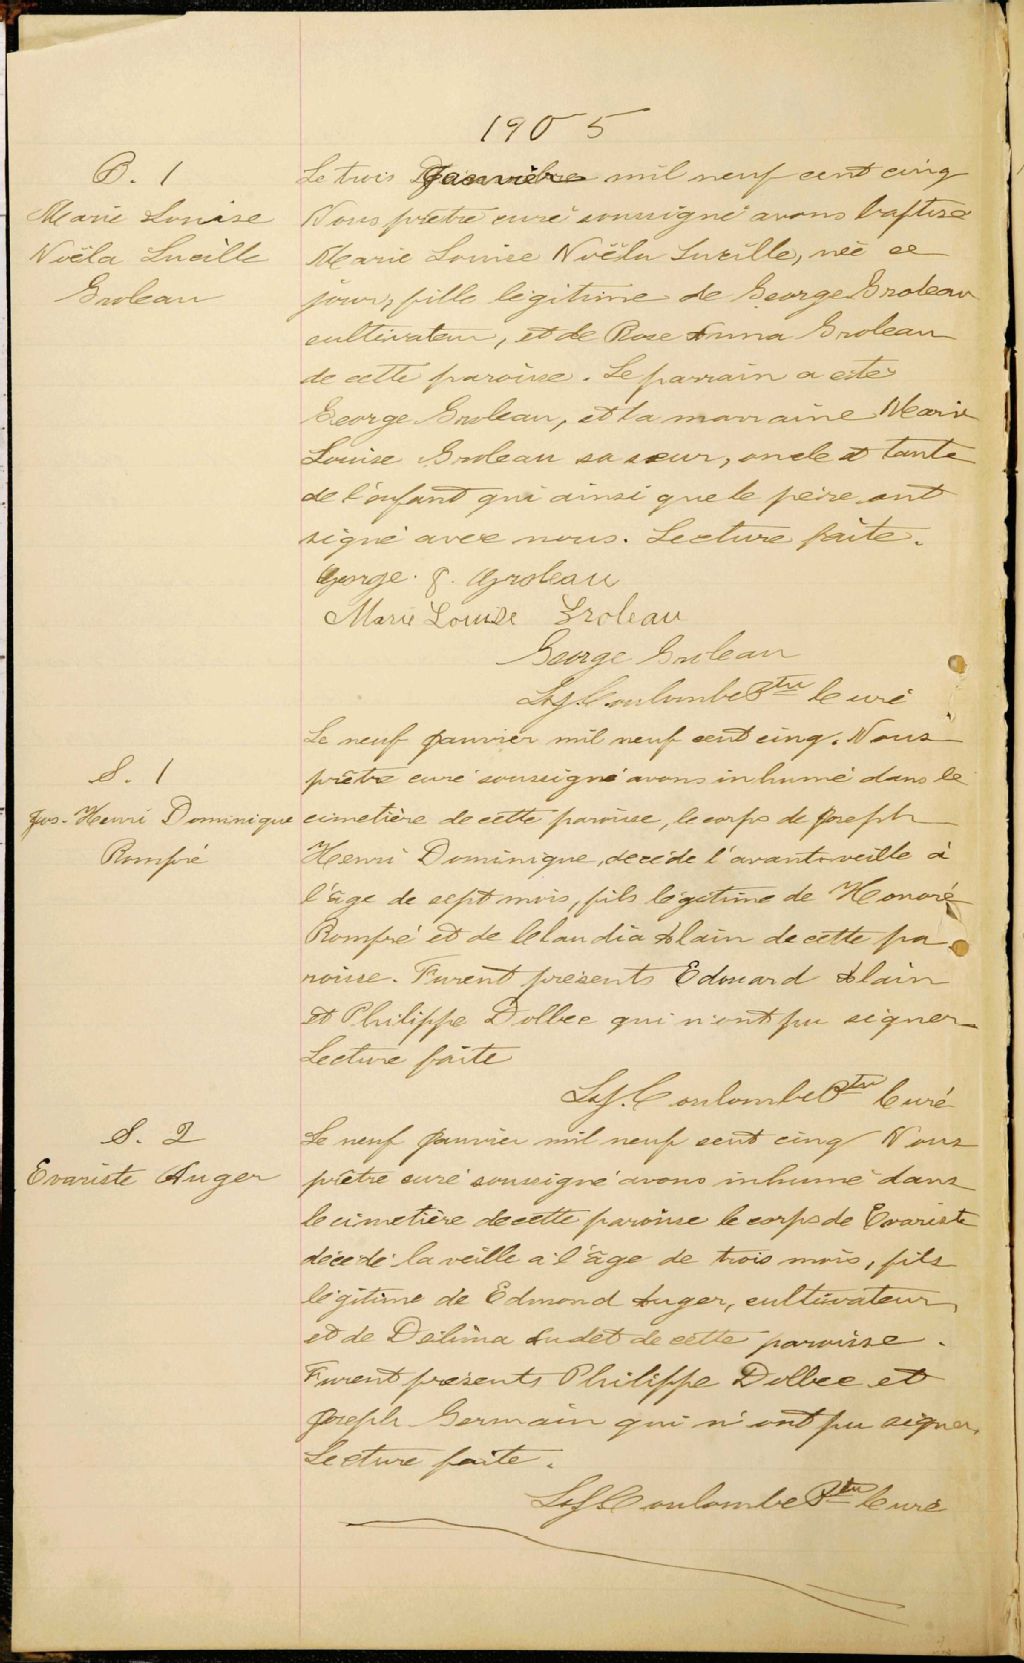 1905
B. 1
Marie Louise
Noëla Lucille
Groleau
Le trois Janvier mil neuf cent cinq
Nous prêtre curé soussigné avons baptisé
Marie Louise Noëla Lucille, née ce
jour, fille légitime de George Groleau
cultivateur, et de Rose Anna Groleau
de cette paroisse. Le parrain a été
George Groleau, et la marraine Marie
Louise Groleau sa sœur, oncle et tante
de l'enfant qui ainsi que le père ont
signé avec nous. Lecture faite.
George. J. Groleau
Marie Louise Groleau
George Groleau
Coulombe Ptre Curé
S. 1
Jos-Henri Dominique
Rompré
Le neuf Janvier mil neuf cent cinq. Nous
prêtre curé soussigné avons inhumé dans le
cimetière de cette paroisse, le corps de Joseph
Henri Dominique, décédé l'avant-veille à
l'âge de sept mois, fils légitime de Honoré
Rompré et de Claudia Alain de cette pa
roisse. Furent présents Edouard Alain
et Philippe Dolbec qui n'ont pu signer
Lecture faite
Coulombe Ptre Curé
S. 2
Evariste Auger
Le neuf Janvier mil neuf cent cinq Nous
prêtre curé soussigné avons inhumé dans
le cimetière de cette paroisse le corps de Evariste
décédé la veille à l'âge de trois mois, fils
légitime de Edmond Auger, cultivateur,
et de Délima Audet de cette paroisse.
Furent présents Philippe Dolbec et
Joseph Germain qui n'ont pu signer.
Lecture faite.
Coulombe Ptre Curé